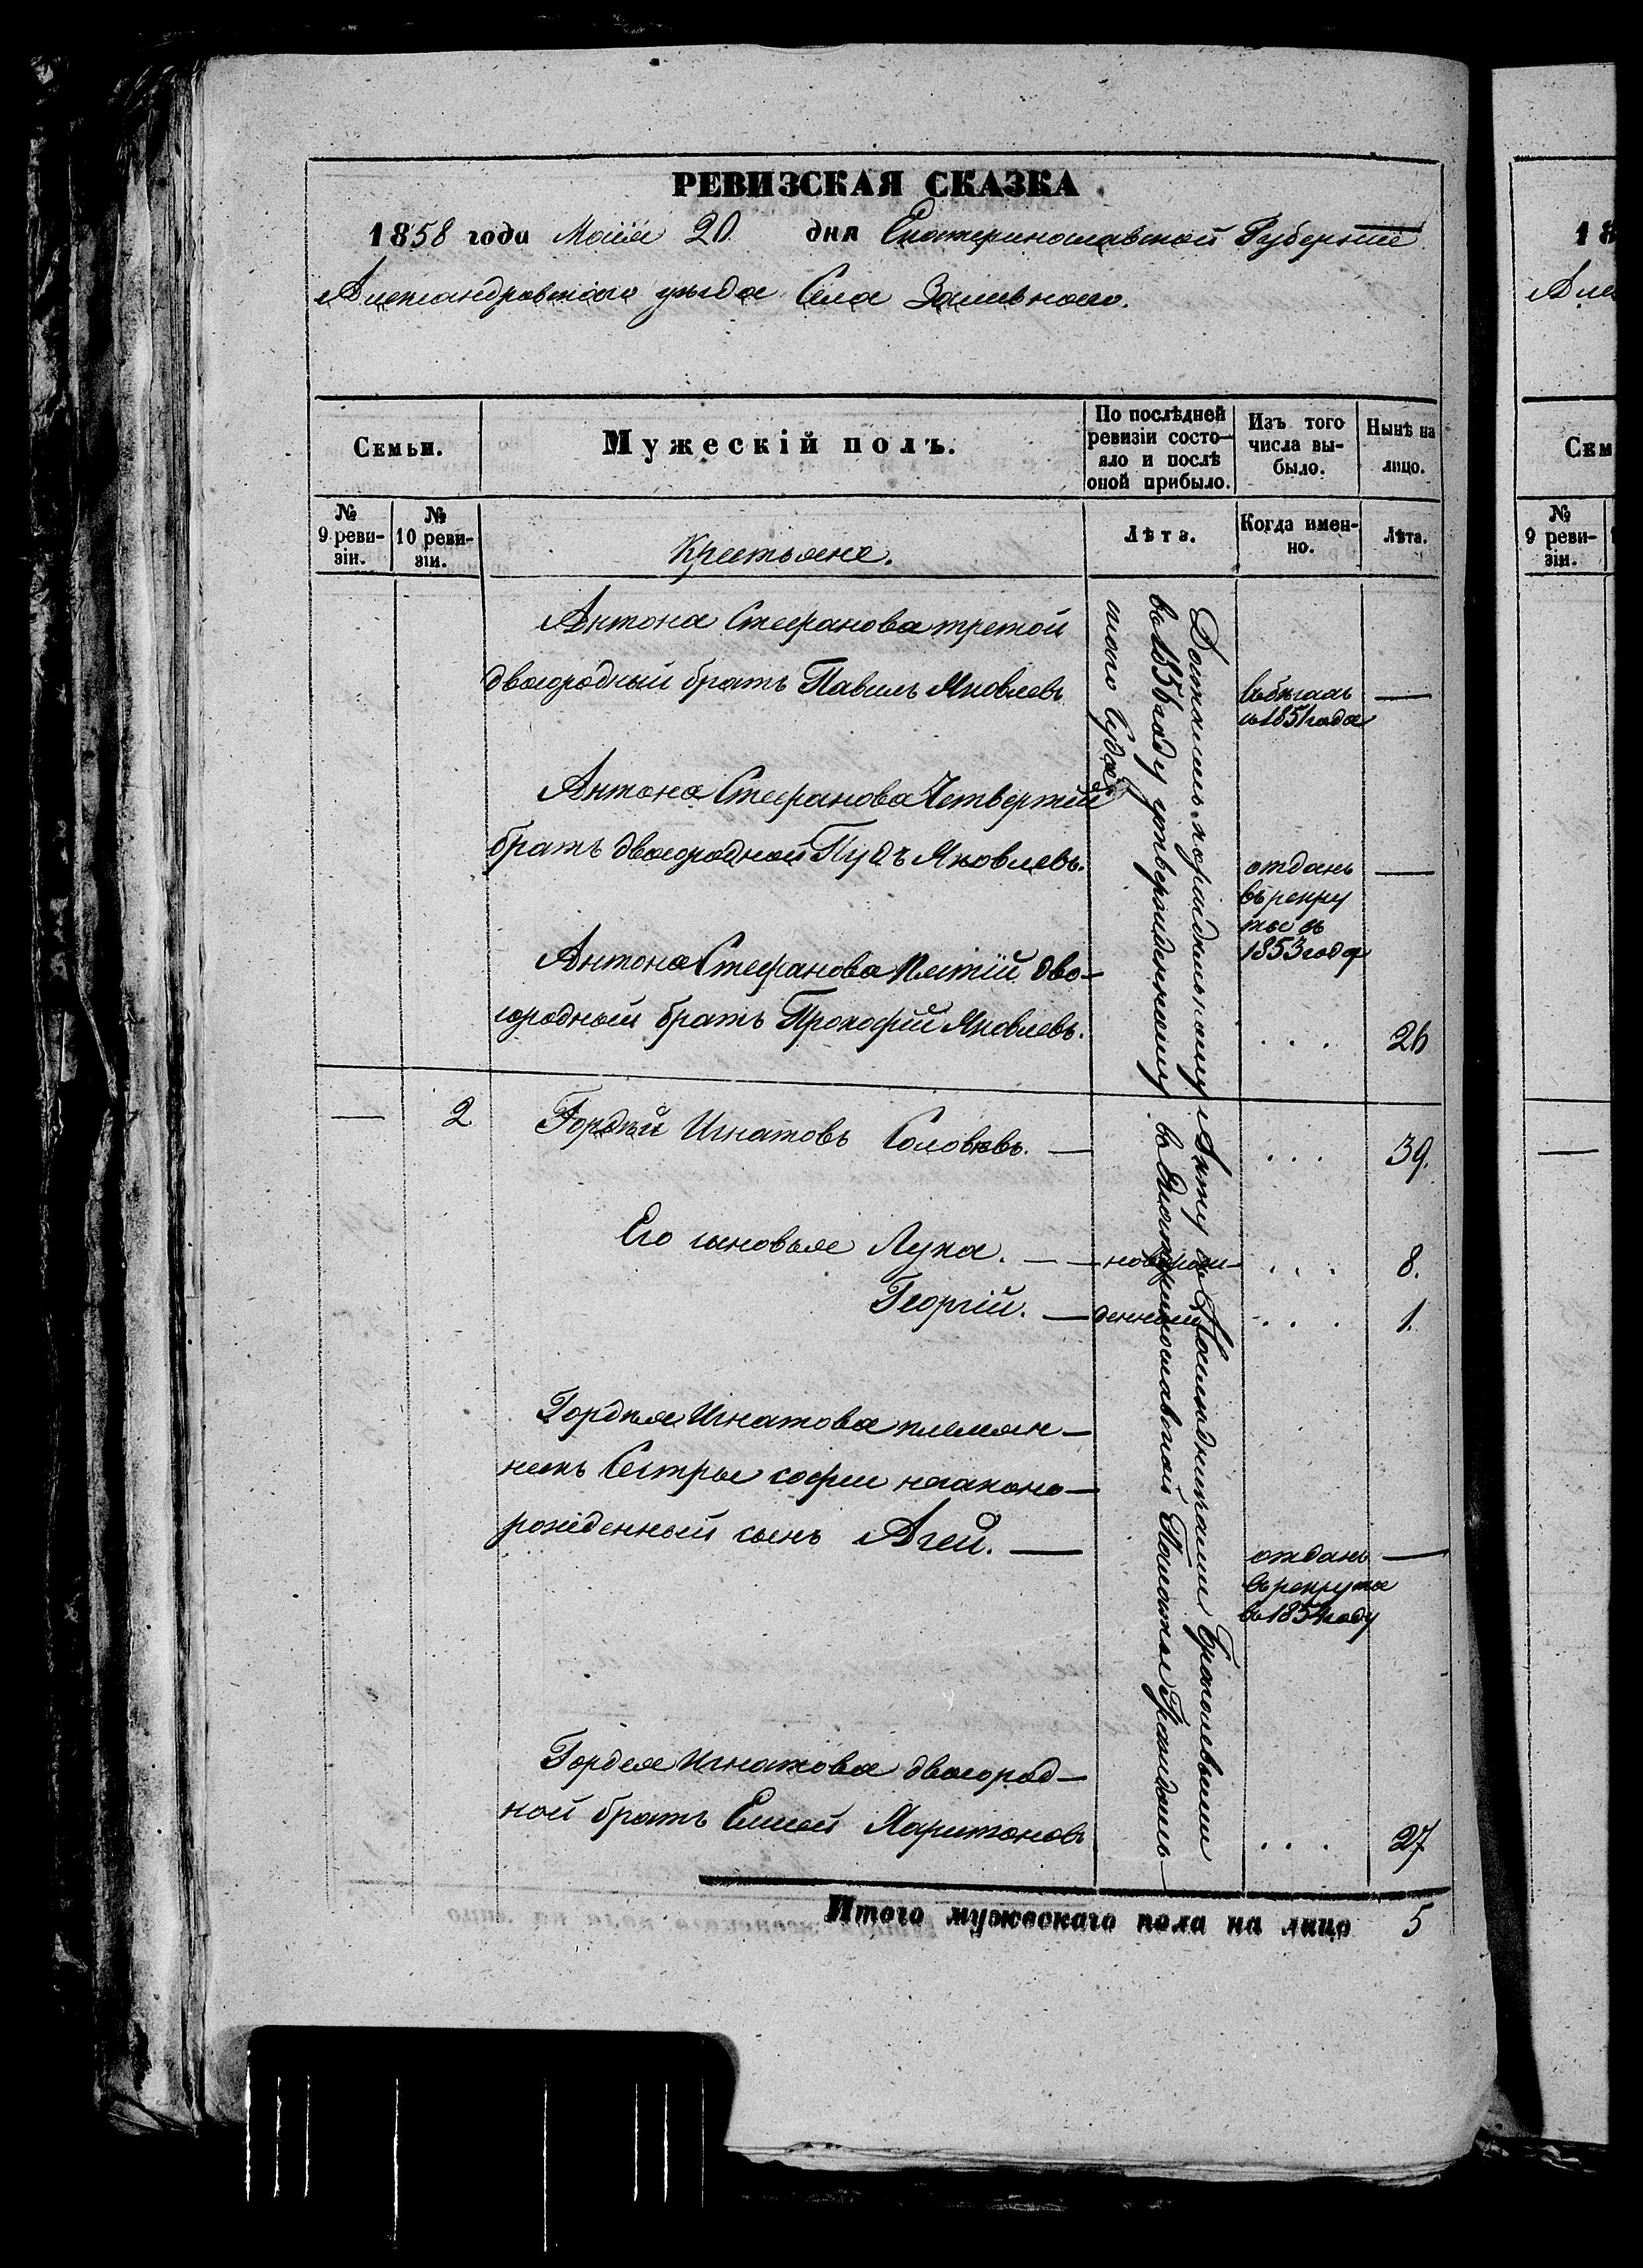 РЕВИЗСКАЯ СКАЗКА
1858 года Маія 20 дня Екатеринославской Губерніи
Александровскаго уезда Села Заливнаго.
Семьи.
Мужескій полъ.
По послѣдней ревизіи состояло и послѣ оной прибыло.
Изъ того числа выбыло.
Нынѣ на лицо.
№ 9 ревизіи.
№ 10 ревизіи.
Крестьяне.
Лѣта.
Когда именно.
Лѣта.
Антона Стефанова третой
двоюродный братъ Павилъ Яковлевъ
въ бѣгахъ
съ 1851 года
—
Антона Стефанова Четвертій
братъ двоюродной Пудъ Яковлевъ.
отданъ
въ рекру
ты въ
1853 года
—
Антона Стефанова Пятій дво-
юродный братъ Прокофій Яковлевъ.
. . . 26
— 2 Гордѣй Игнатовъ Соловьевъ. — . . . 39.
Его сыновья Лука. — новорож- . . . 8.
Георгій. — денные . . . 1.
Гордѣя Игнатова племян-
никъ Сестры софіи незаконо-
рожденный сынъ Агей. —
отданъ —
въ рекруты
въ 1854 году
Гордея Игнатова двоюрод-
ной братъ Елисей Харитоновъ
. . . 27
Достались по раздельному Акту съ Наследниками
въ 1856 году утвержденному въ Екатеринославской Палате Граждан-
скаго Суда
Итого мужескаго пола на лицо 5
18
Але
Сем
№ 9 ревизіи.
—